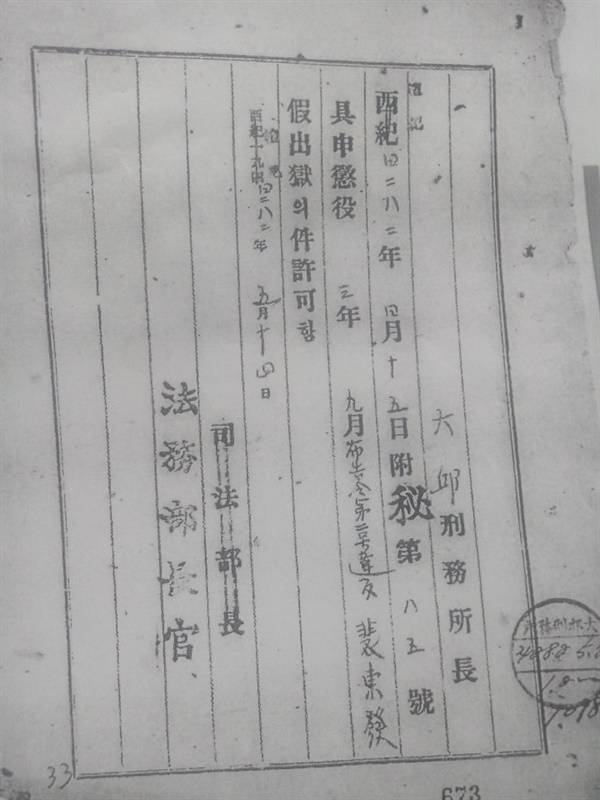 大邱刑務所長
檀記
西紀四二八二年四月十五日附秘第八五號
具申懲役三年九月布告令第二號違反裵東發
假出獄의件許可함
檀紀
四二八二年五月十四日
司法部長
法務部長官
33
673